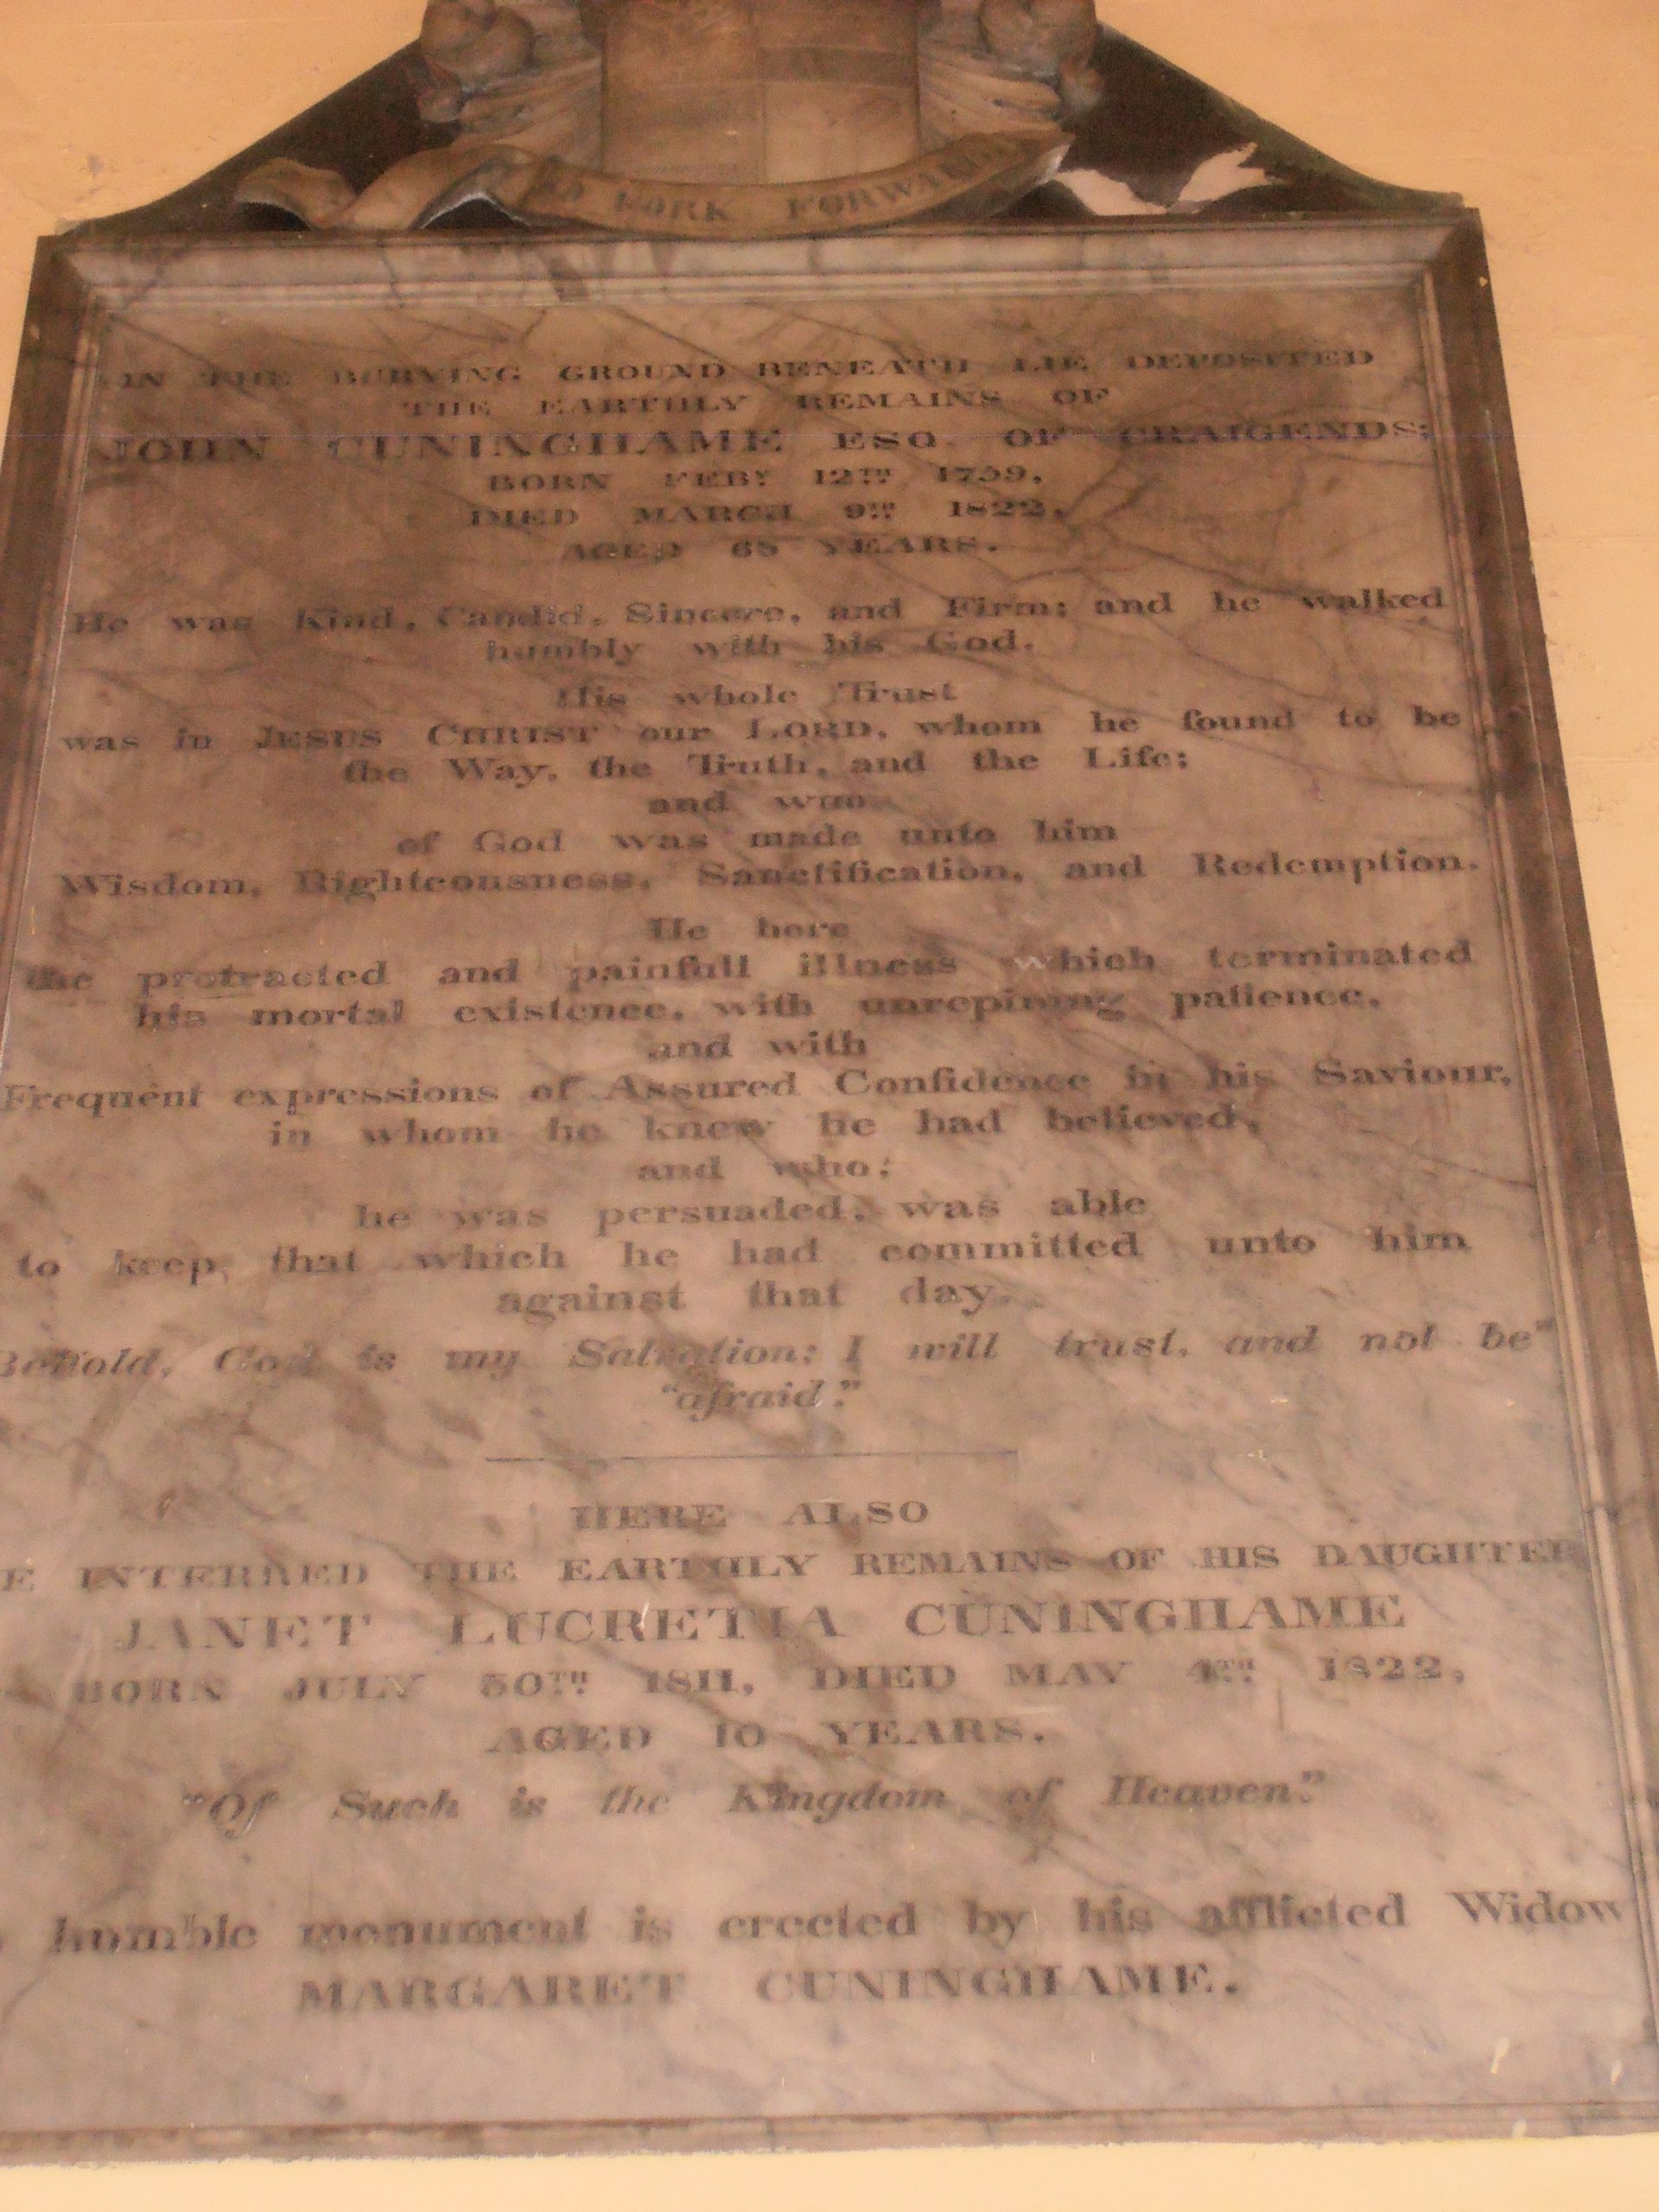 FORK FORWARD
IN THE BURYING GROUND BENEATH LIE DEPOSITED
THE EARTHLY REMAINS OF
JOHN CUNINGHAME ESQ. OF CRAIGENDS;
BORN FEBY 12TH 1759,
DIED MARCH 9TH 1822,
AGED 63 YEARS.
He was Kind, Candid, Sincere, and Firm; and he walked
humbly with his God.
His whole Trust
was in JESUS CHRIST our LORD, whom he found to be
the Way, the Truth, and the Life;
and who
of God was made unto him
Wisdom, Righteousness, Sanctification, and Redemption.
He bore
the protracted and painfull illness which terminated
his mortal existence, with unrepining patience,
and with
Frequent expressions of Assured Confidence in his Saviour,
in whom he knew he had believed,
and who;
he was persuaded, was able
to keep, that which he had committed unto him
against that day.
Behold, God is my Salvation; I will trust, and not be"
"afraid."
HERE ALSO
E INTERRED THE EARTHLY REMAINS OF HIS DAUGHTER
JANET LUCRETIA CUNINGHAME
BORN JULY 30TH 1811, DIED MAY 4TH 1822,
AGED 10 YEARS.
"Of Such is the Kingdom of Heaven."
humble monument is erected by his afflicted Widow
MARGARET CUNINGHAME.